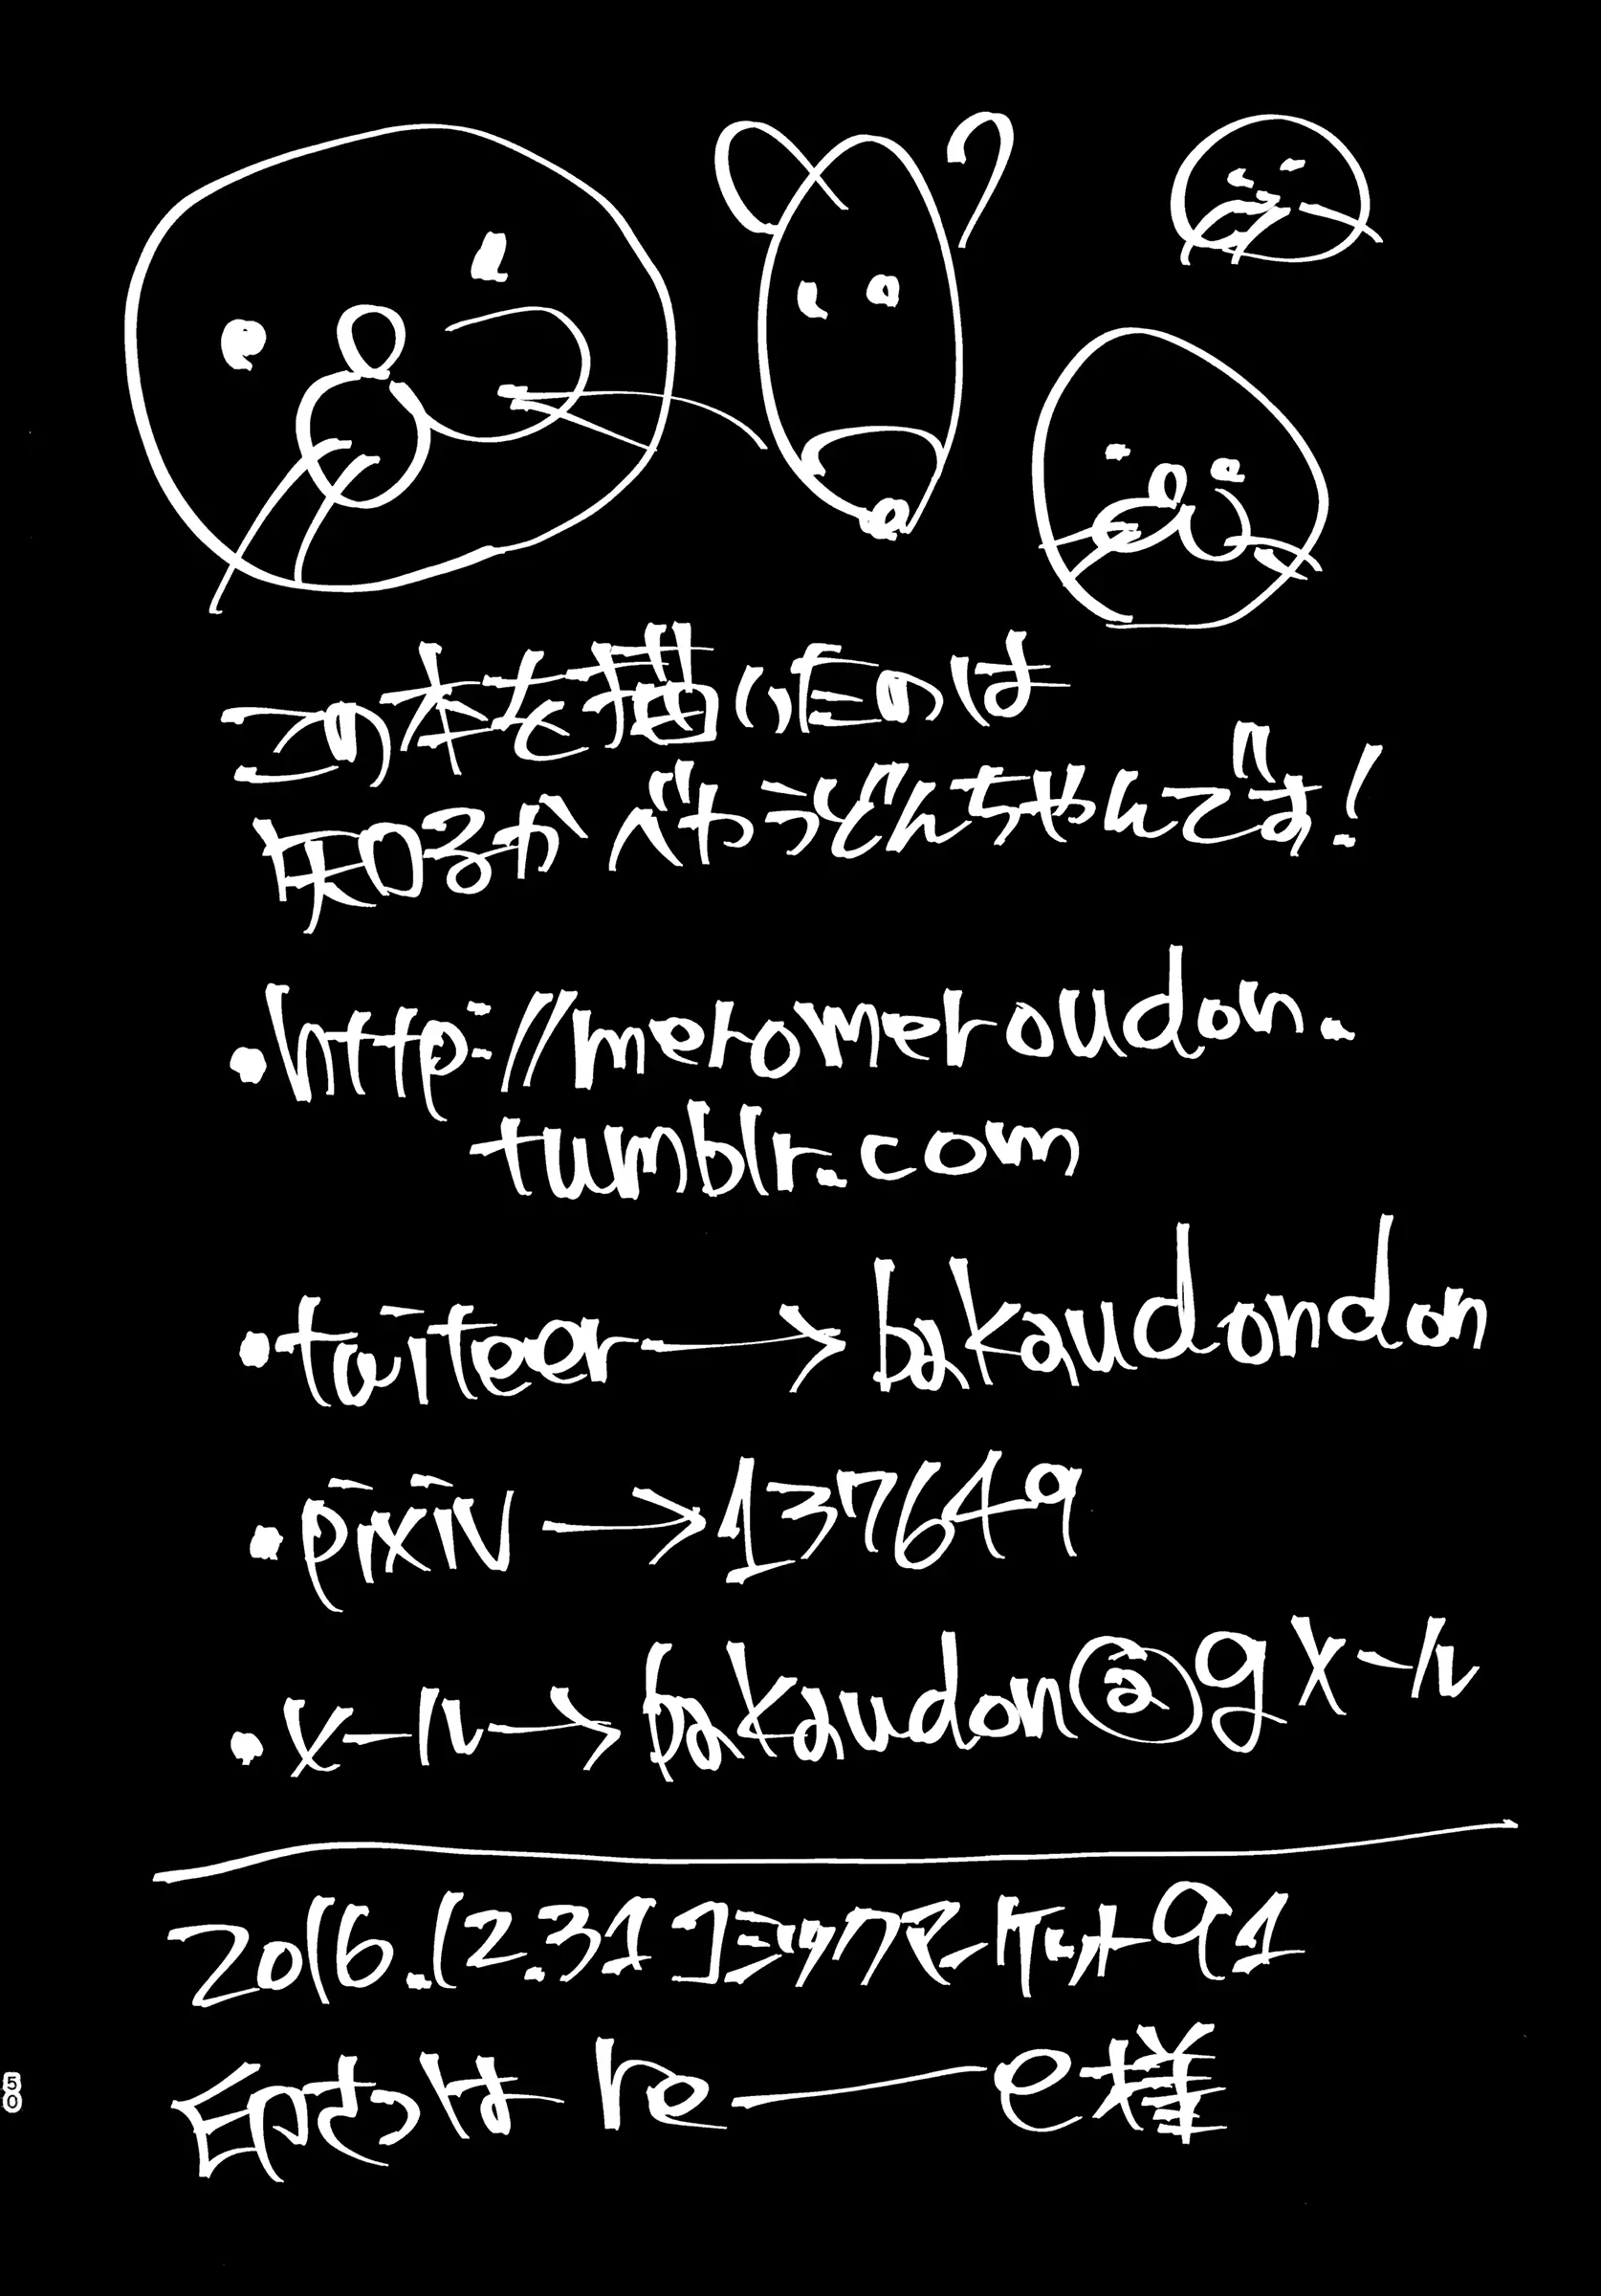 この本を描いたのは
知るかバカうどんちゃんです!
・http://meromeroudon.
tumblr.com
・twiteer→bakaudondon
・pixiv→137649
・メール→bakaudon@gメール
2016.12.31コミックマーケット91
印さつは re―e様
50